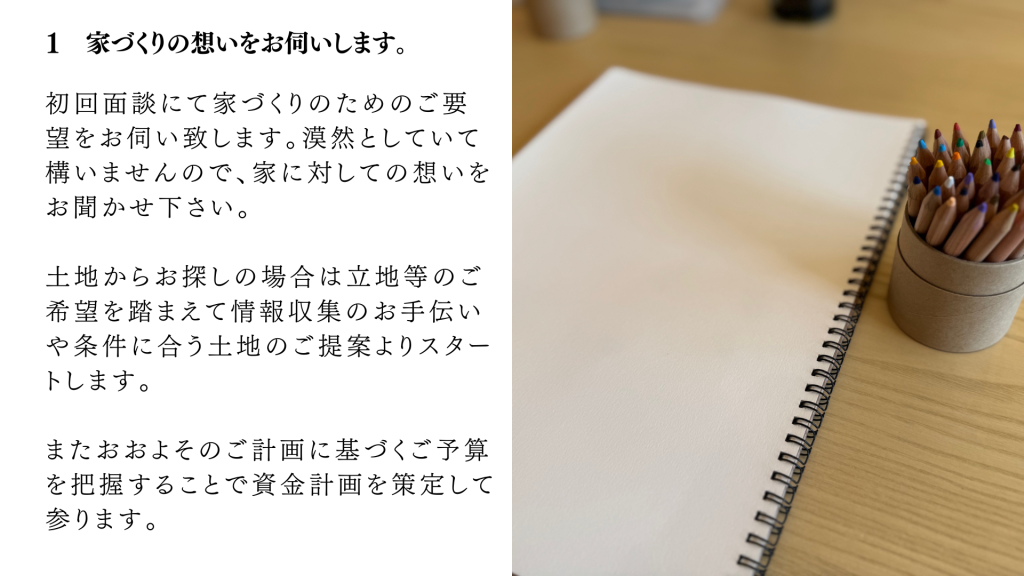 1　家づくりの想いをお伺いします。
初回面談にて家づくりのためのご要
望をお伺い致します。漠然としていて
構いませんので、家に対しての想いを
お聞かせ下さい。
土地からお探しの場合は立地等のご
希望を踏まえて情報収集のお手伝い
や条件に合う土地のご提案よりスター
トします。
またおおよそのご計画に基づくご予算
を把握することで資金計画を策定して
参ります。